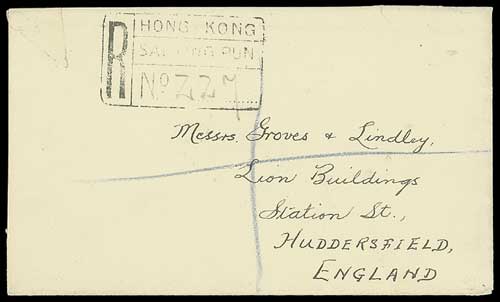 R
HONG KONG
SAI YING PUN
No 227
Messrs. Groves & Lindley,
Lion Buildings
Station St.,
HUDDERSFIELD,
ENGLAND